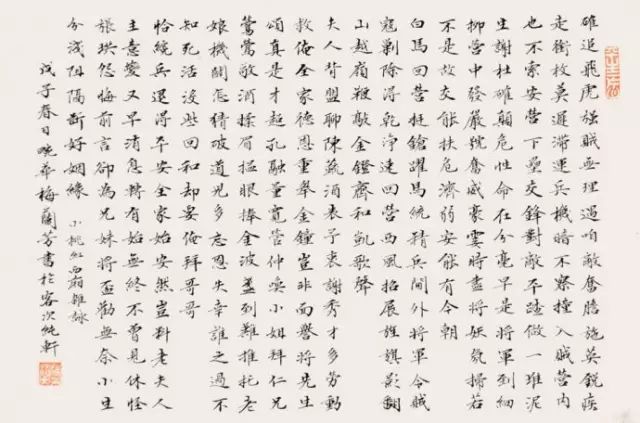 確追飛虎強賊無理過咱敵奮膽施英銳疾
走銜枚莫遲滯運兵機暗不察撞入賊營內
也不索安營下壘交鋒對敵平踏做一堆泥
生謝杜確顛危性命在分毫早是將軍到細
柳營中發嚴號奮威豪霎時盡將妖氛掃若
不是故交能扶危濟弱安能有今朝
白馬回營挺鎗躍馬統精兵閫外將軍令賊
寇剿除得乾淨速回營西風招展旌旗影翻
山越嶺鞭敲金鐙齊和凱歌聲
夫人背盟聊陳蔬酒表予衷謝秀才多勞動
救俺全家德恩重舉金鐘豈非而譽將先生
頌真是才超孔融量寬管仲喚小姐拜仁兄
鶯鶯敬酒揉眉搵眼捧金波盞到難推托老
娘機關怎猜破道兄多忘恩失幸誰之過不
知死活沒些回和却要俺拜哥哥
恰繞兵退得平安全家始安然豈料老夫人
主意變又早消息轉有始無終不曾見休怪
張珙怨悔前言卻為兄妹將盃勸無奈小生
分淺阻隔斷好姻緣 小桃紅西廂雜詠
戊子春日畹華梅蘭芳書於客次純軒